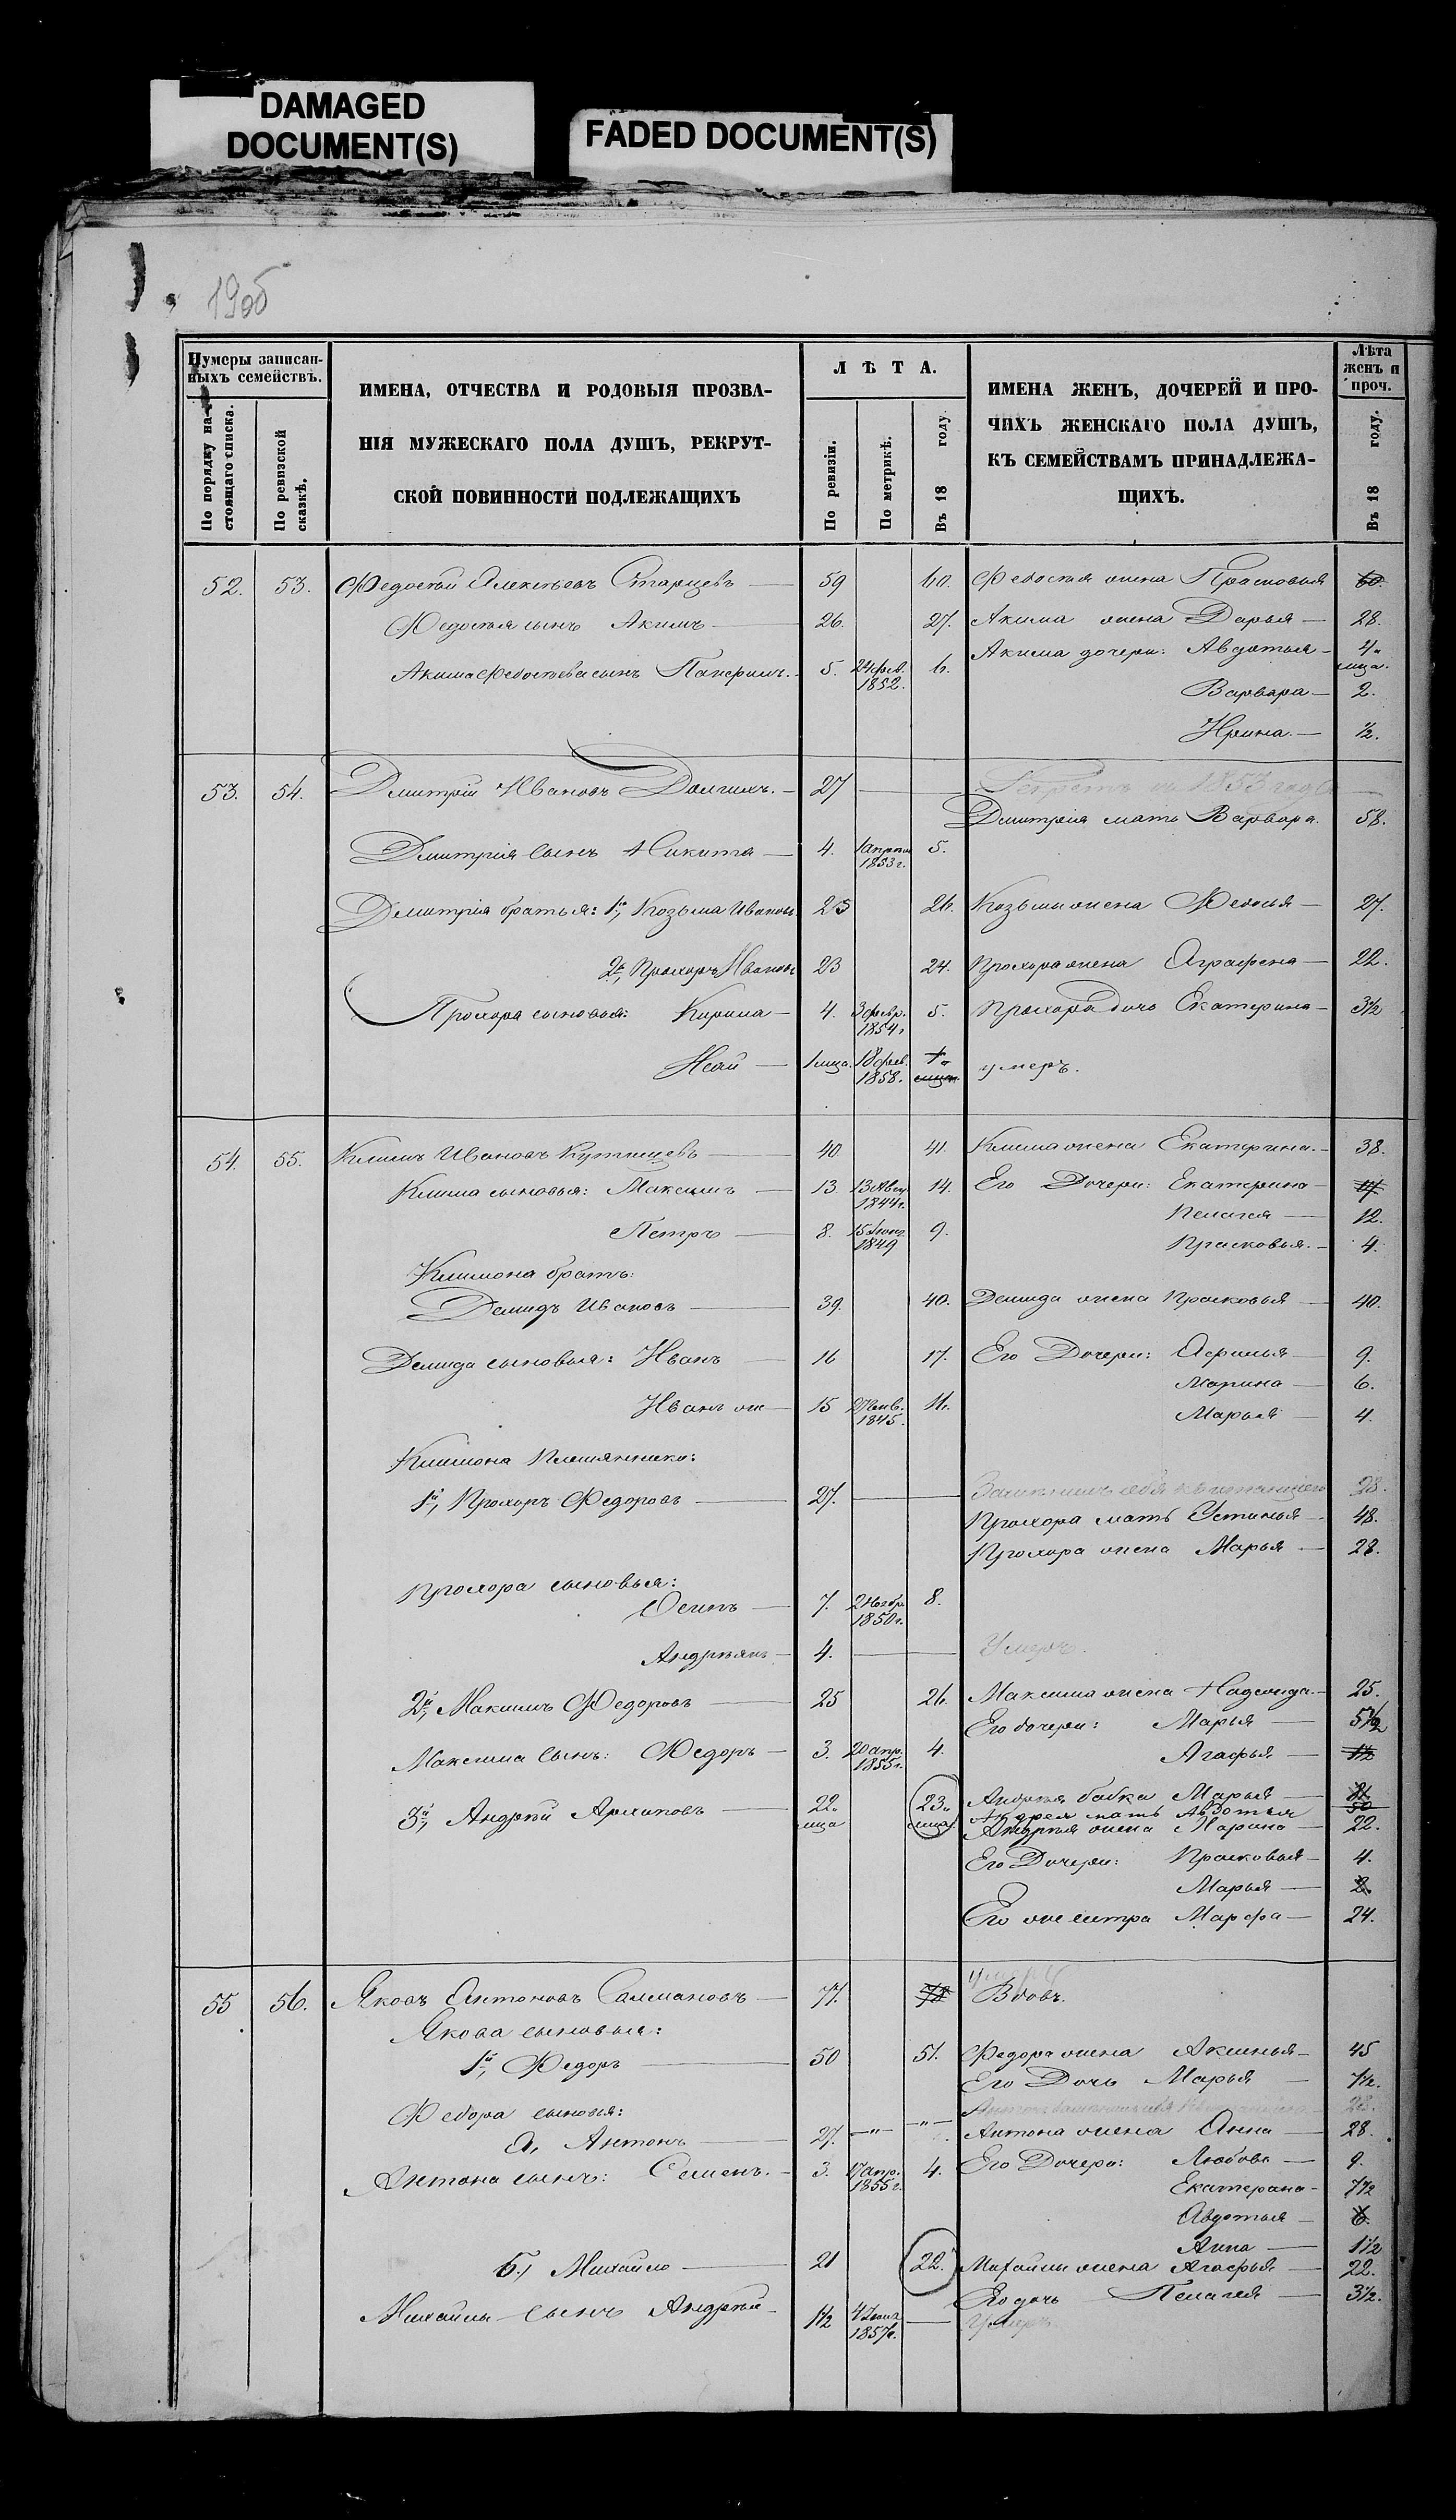 DAMAGED
DOCUMENT(S)
FADED DOCUMENT(S)
Нумеры записан-
ныхъ семействъ.
По порядку на-
стоящаго списка.
По ревизской
сказкѣ.
ИМЕНА, ОТЧЕСТВА И РОДОВЫЯ ПРОЗВА-
НІЯ МУЖЕСКАГО ПОЛА ДУШЪ, РЕКРУТ-
СКОЙ ПОВИННОСТИ ПОДЛЕЖАЩИХЪ
ЛѢТА.
По ревизіи.
По метрикѣ.
Въ 18 году.
ИМЕНА ЖЕНЪ, ДОЧЕРЕЙ И ПРО-
ЧИХЪ ЖЕНСКАГО ПОЛА ДУШЪ,
КЪ СЕМЕЙСТВАМЪ ПРИНАДЛЕЖА-
ЩИХЪ.
Лѣта
женъ и
проч.
Въ 18 году.
52. 53. Федосѣй Алексѣевъ Старцевъ 59 60. Федосѣя жена Прасковья 60.
Федосѣя сынъ Акимъ 26. 27. Акима жена Дарья 28.
Акима дочери: Авдотья 4 м-ца.
Акима Федосѣева сынъ 5. 24 фев. 1852. 6.
Варвара 2.
Ирина ½.
53. 54. Дмитрій Ивановъ Долгихъ. 27 1853 года
Дмитрія мать Варвара. 58.
Дмитрія сынъ Никита 4. 1 апрѣля 1853 г. 5.
Дмитрія братья: 1й, Козьма Ивановъ 25 26. Козьмы жена Федосья 27.
2й, Прохоръ Ивановъ 23 24. Прохора жена Аграфена 22.
Прохора сыновья: Кирила 4. 3 февр. 1854 г. 5. Прохора дочь Екатерина 3½
Исай 1 м-ца. 18 фев. 1858. умеръ.
54. 55. Климъ Ивановъ 40. 41. Клима жена Екатерина. 38.
Клима сыновья: Максимъ 13 13 Авг. 1844 г. 14. Его Дочери: Екатерина
Пелагея 12.
Петръ 8. 1849 9.
Прасковья. 4.
Климона братъ:
Демидъ Ивановъ 39. 40. Демида жена Прасковья 40.
Демида сыновья: Иванъ 16 17. Его Дочери: Афимья 9.
Марина 6.
Иванъ же 15 27 янв. 1845. 16.
Марья 4.
Климона Племянники:
1й, Прохоръ Федоровъ 27. 28.
Прохора мать Устинья 48.
Прохора жена Марья 28.
Прохора сыновья:
Осипъ 7. 2 Ноябр. 1850 г. 8.
Андреянъ 4. Умеръ.
2й, Максимъ Федоровъ 25 26. Максима жена Надежда. 25.
Его дочери: Марья 5½
Максима сынъ: Федоръ 3. 20 апр. 1855 г. 4. Агафья 1½
3й, Андрей Архиповъ 22 м-ца 23 м-ца Андрея бабка Марья 81.
Андрея мать Авдотья 50
Андрея жена Марина 22.
Его Дочери: Прасковья 4.
Марья 2.
Его же сестра Марфа 24.
55 56. Яковъ Антоновъ Салмановъ 77. 78 умеръ
Вдовъ.
Якова сыновья:
1й, Федоръ 50 51. Федора жена Аксинья 45
Его Дочь Марья 7½.
Федора сыновья:
28.
а, Антонъ 27. Антона жена Анна 28.
Антона сынъ: Семенъ. 3. 17 апр. 1855 г. 4. Его Дочери: Любовь 9.
Екатерина 7½
Авдотья 6.
Анна 1½
б, Михайло 21 22. Михайлы жена Агафья 22.
Его дочь Пелагея 3½.
Михайлы сынъ Андрей 1½ 1857 г. Умеръ.